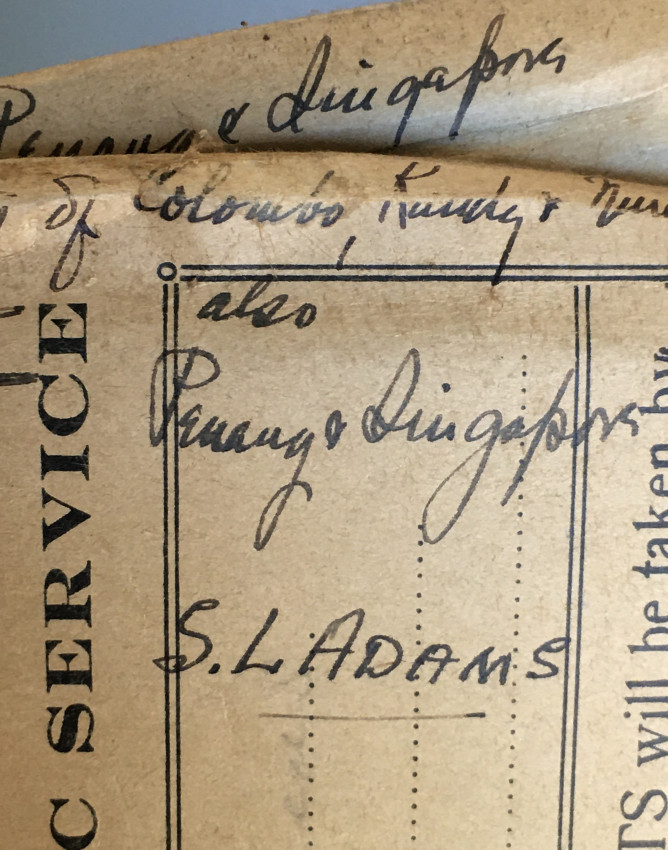 Penang & Singapore
of Colombo, Kandy &
also
Penang & Singapore
S. L ADAMS
C SERVICE
TS will be taken by